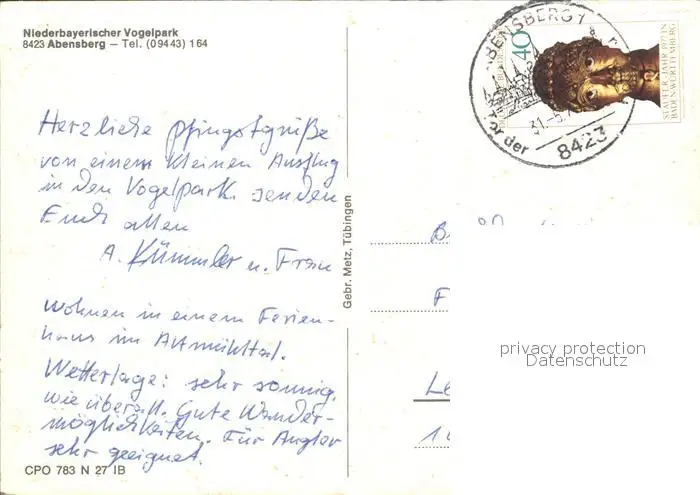 Niederbayerischer Vogelpark
8423 Abensberg – Tel. (09443) 164
Herzliche Pfingstgrüße
von einem kleinen Ausflug
in den Vogelpark senden
Euch allen
A. Kümmler u. Frau
Wohnen in einem Ferien-
haus im Altmühltal.
Wetterlage: sehr sonnig,
wie überall. Gute Wander-
möglichkeiten. Für Angler
sehr geeignet.
CPO 783 N 27 IB
Gebr. Metz, Tübingen
ABENSBERG 1
31.-5.
8423
der
40
STAUFER-JAHR 1977 IN
BADEN-WÜRTTEMBERG
B
F
Le
privacy protection
Datenschutz